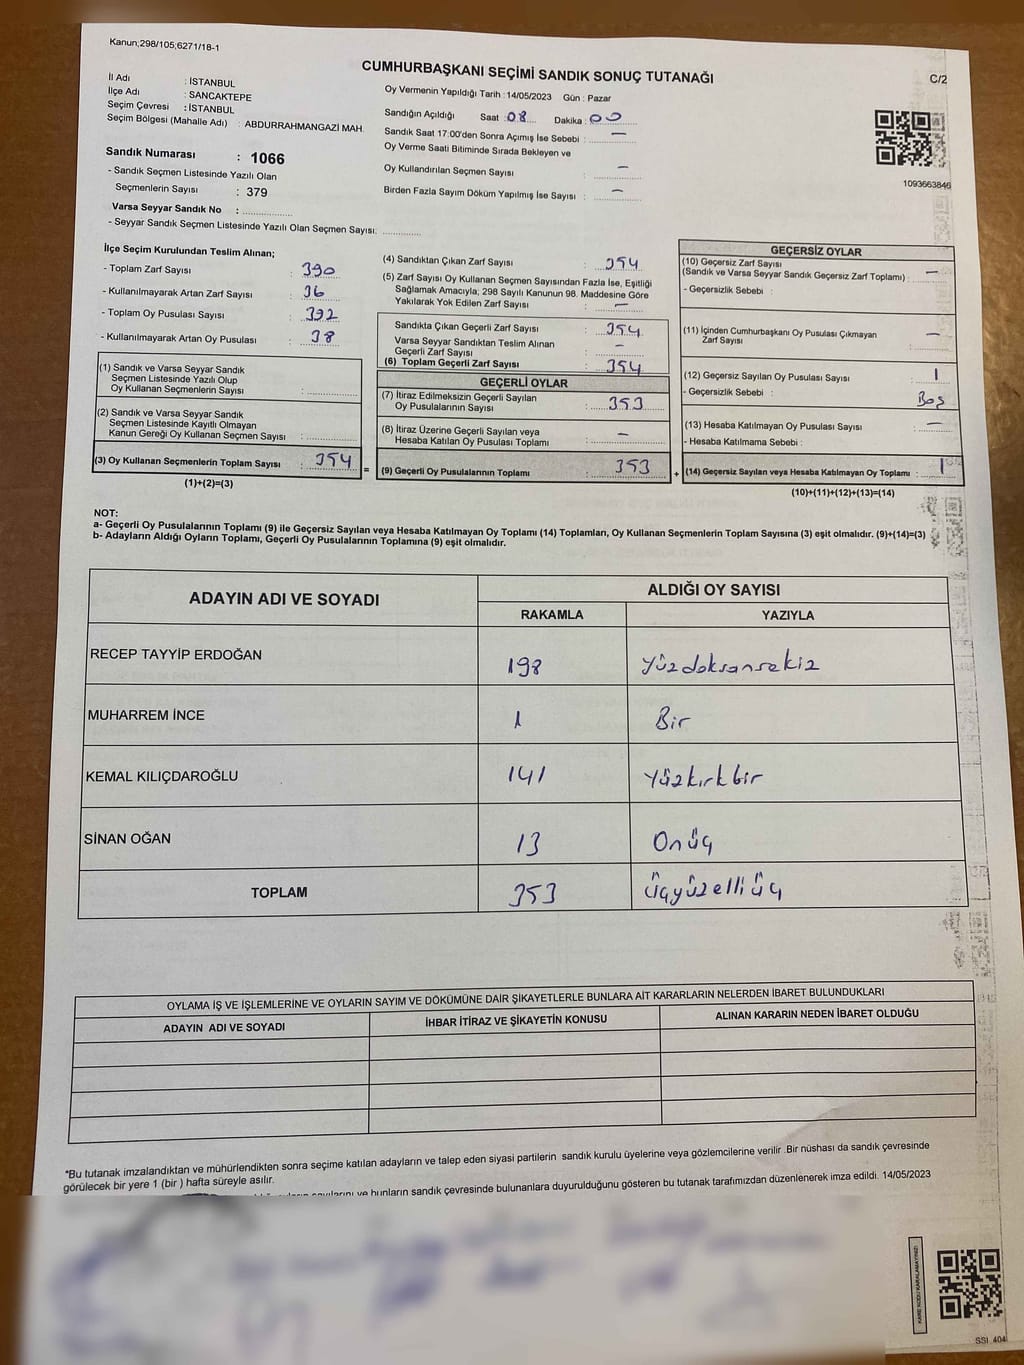 Kanun;298/105;6271/18-1
CUMHURBAŞKANI SEÇİMİ SANDIK SONUÇ TUTANAĞI
C/2
İl Adı : İSTANBUL
İlçe Adı : SANCAKTEPE
Seçim Çevresi : İSTANBUL
Seçim Bölgesi (Mahalle Adı) : ABDURRAHMANGAZİ MAH.
Oy Vermenin Yapıldığı Tarih :14/05/2023 Gün : Pazar
Sandığın Açıldığı Saat :08 Dakika :00
Sandık Saat 17:00'den Sonra Açımış İse Sebebi : —
Oy Verme Saati Bitiminde Sırada Bekleyen ve
Oy Kullandırılan Seçmen Sayısı : —
Birden Fazla Sayım Döküm Yapılmış İse Sayısı : —
1093663846
Sandık Numarası : 1066
- Sandık Seçmen Listesinde Yazılı Olan
Seçmenlerin Sayısı : 379
Varsa Seyyar Sandık No :
- Seyyar Sandık Seçmen Listesinde Yazılı Olan Seçmen Sayısı:
İlçe Seçim Kurulundan Teslim Alınan;
- Toplam Zarf Sayısı : 390
- Kullanılmayarak Artan Zarf Sayısı : 36
- Toplam Oy Pusulası Sayısı : 392
- Kullanılmayarak Artan Oy Pusulası : 38
(1) Sandık ve Varsa Seyyar Sandık
Seçmen Listesinde Yazılı Olup
Oy Kullanan Seçmenlerin Sayısı :
(2) Sandık ve Varsa Seyyar Sandık
Seçmen Listesinde Kayıtlı Olmayan
Kanun Gereği Oy Kullanan Seçmen Sayısı :
(3) Oy Kullanan Seçmenlerin Toplam Sayısı : 354 =
(1)+(2)=(3)
(4) Sandıktan Çıkan Zarf Sayısı : 354
(5) Zarf Sayısı Oy Kullanan Seçmen Sayısından Fazla İse, Eşitliği
Sağlamak Amacıyla; 298 Sayılı Kanunun 98. Maddesine Göre
Yakılarak Yok Edilen Zarf Sayısı : —
Sandıkta Çıkan Geçerli Zarf Sayısı : 354
Varsa Seyyar Sandıktan Teslim Alınan
Geçerli Zarf Sayısı : —
(6) Toplam Geçerli Zarf Sayısı : 354
GEÇERLİ OYLAR
(7) İtiraz Edilmeksizin Geçerli Sayılan
Oy Pusulalarının Sayısı : 353
(8) İtiraz Üzerine Geçerli Sayılan veya
Hesaba Katılan Oy Pusulası Toplamı : —
(9) Geçerli Oy Pusulalarının Toplamı : 353 +
GEÇERSİZ OYLAR
(10) Geçersiz Zarf Sayısı
(Sandık ve Varsa Seyyar Sandık Geçersiz Zarf Toplamı) : —
- Geçersizlik Sebebi :
(11) İçinden Cumhurbaşkanı Oy Pusulası Çıkmayan
Zarf Sayısı : —
(12) Geçersiz Sayılan Oy Pusulası Sayısı : 1
- Geçersizlik Sebebi : Boş
(13) Hesaba Katılmayan Oy Pusulası Sayısı : —
- Hesaba Katılmama Sebebi :
(14) Geçersiz Sayılan veya Hesaba Katılmayan Oy Toplamı : 1
(10)+(11)+(12)+(13)=(14)
NOT:
a- Geçerli Oy Pusulalarının Toplamı (9) ile Geçersiz Sayılan veya Hesaba Katılmayan Oy Toplamı (14) Toplamları, Oy Kullanan Seçmenlerin Toplam Sayısına (3) eşit olmalıdır. (9)+(14)=(3)
b- Adayların Aldığı Oyların Toplamı, Geçerli Oy Pusulalarının Toplamına (9) eşit olmalıdır.
ADAYIN ADI VE SOYADI ALDIĞI OY SAYISI
RAKAMLA YAZIYLA
RECEP TAYYİP ERDOĞAN 198 Yüzdoksansekiz
MUHARREM İNCE 1 Bir
KEMAL KILIÇDAROĞLU 141 Yüzkırkbir
SİNAN OĞAN 13 Onüç
TOPLAM 353 üçyüzelliüç
OYLAMA İŞ VE İŞLEMLERİNE VE OYLARIN SAYIM VE DÖKÜMÜNE DAİR ŞİKAYETLERLE BUNLARA AİT KARARLARIN NELERDEN İBARET BULUNDUKLARI
ADAYIN ADI VE SOYADI İHBAR İTİRAZ VE ŞİKAYETİN KONUSU ALINAN KARARIN NEDEN İBARET OLDUĞU
*Bu tutanak imzalandıktan ve mühürlendikten sonra seçime katılan adayların ve talep eden siyasi partilerin sandık kurulu üyelerine veya gözlemcilerine verilir .Bir nüshası da sandık çevresinde
görülecek bir yere 1 (bir ) hafta süreyle asılır.
ve bunların sandık çevresinde bulunanlara duyurulduğunu gösteren bu tutanak tarafımızdan düzenlenerek imza edildi. 14/05/2023
KARE KODU KARALAMAYINIZ!
SSI 404